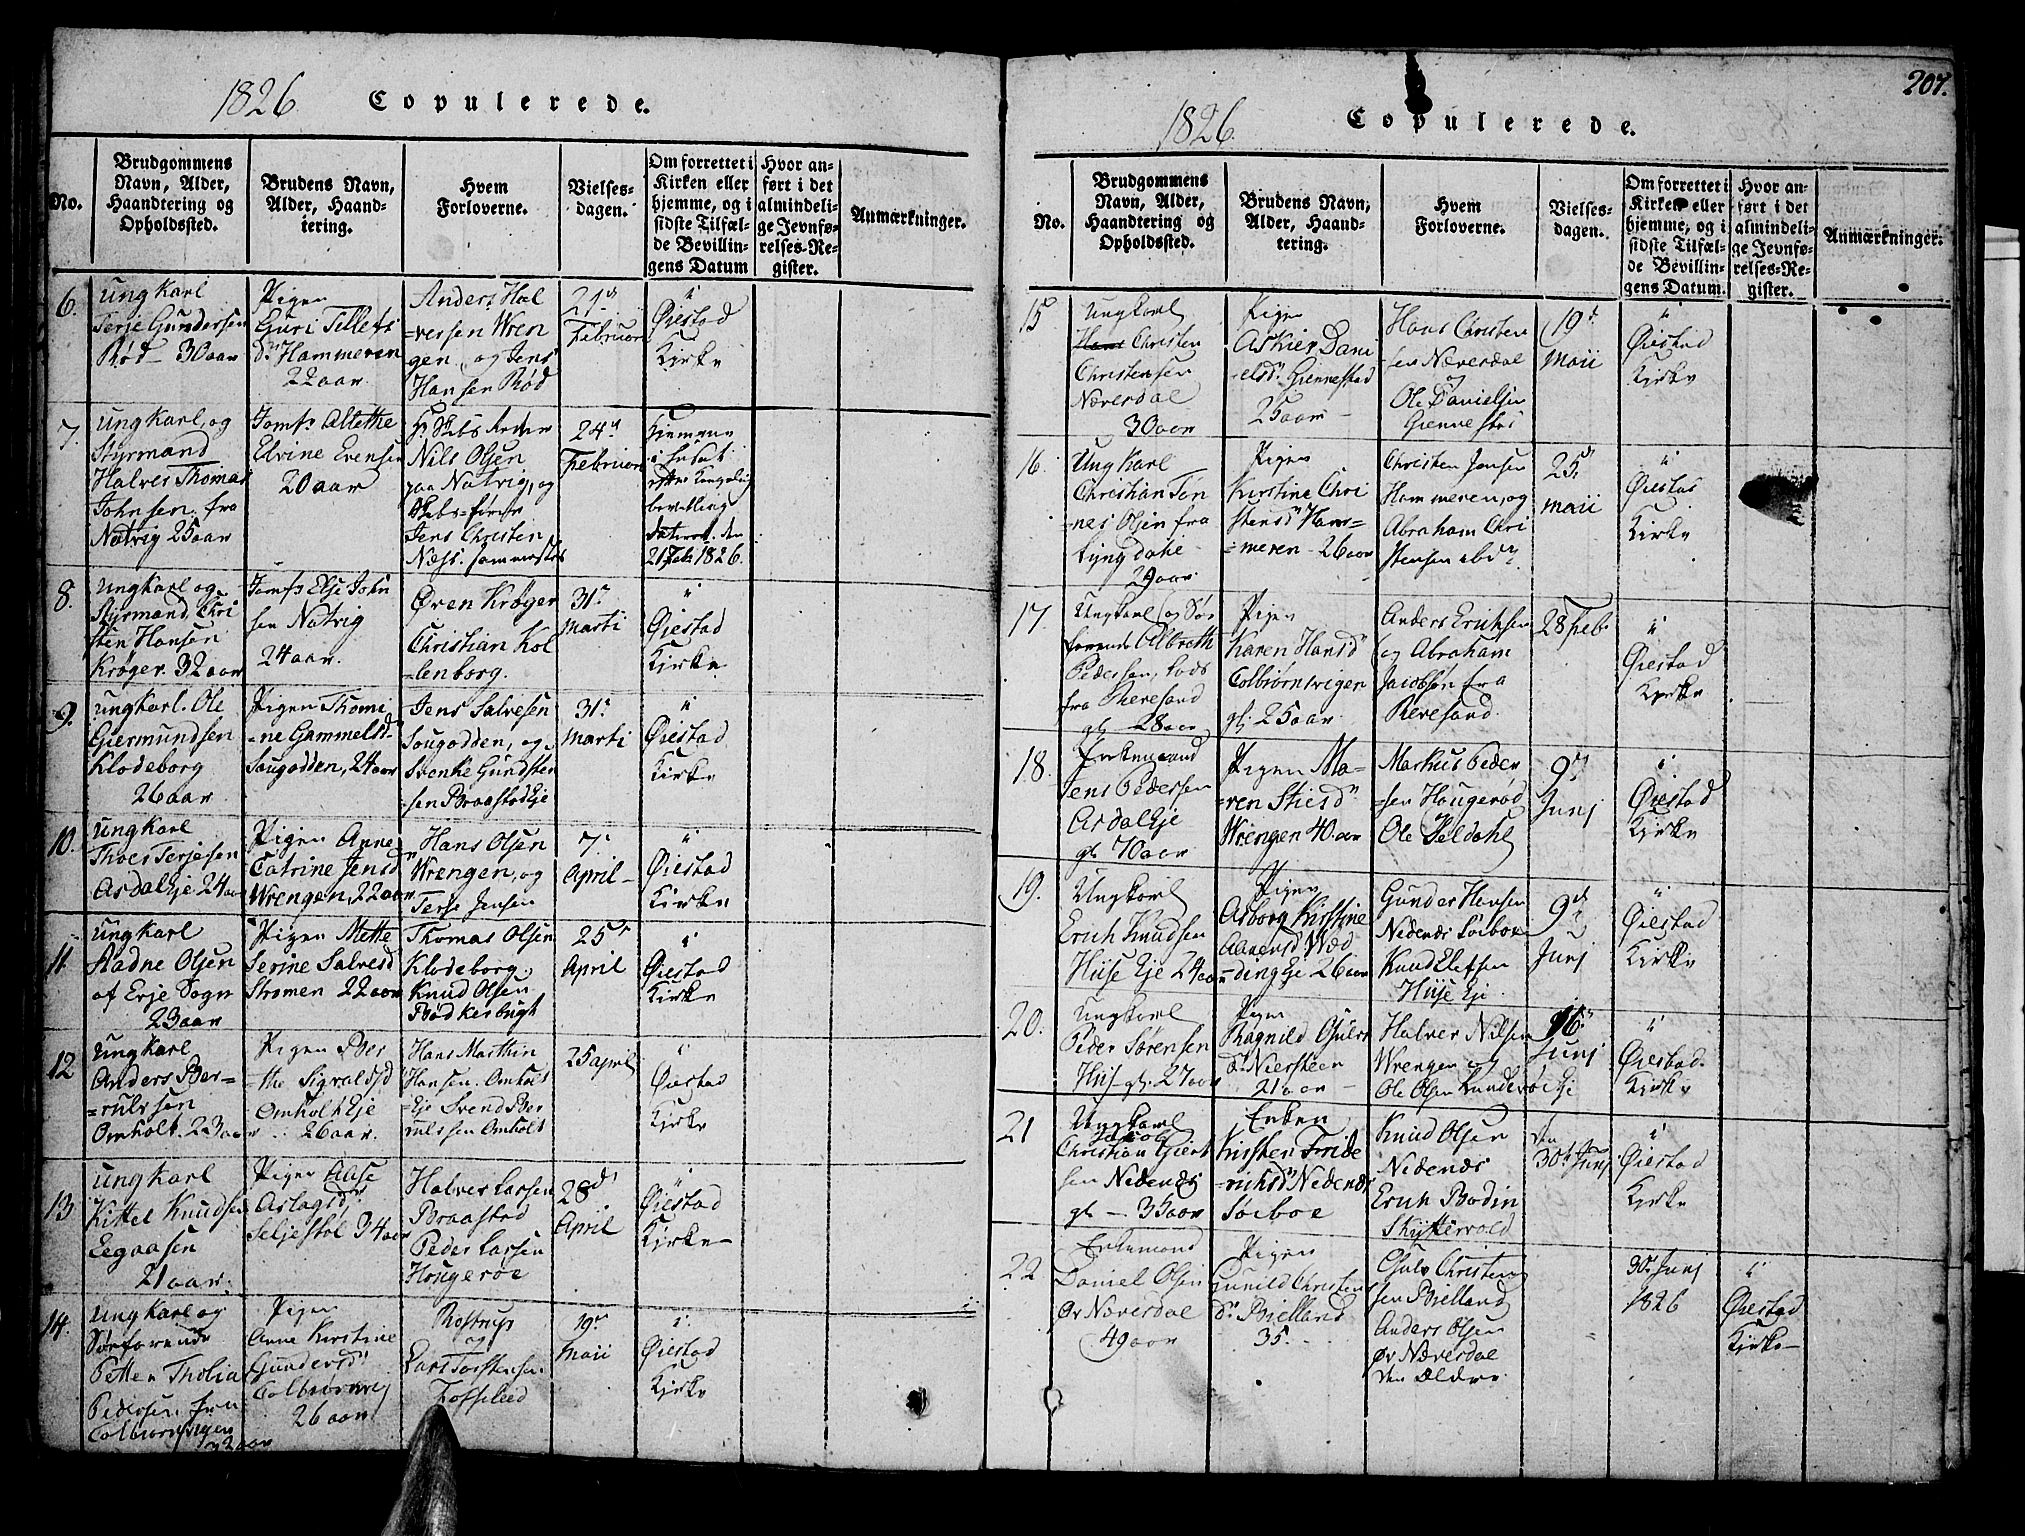 1826. Copulerede.
No.
Brudgommens
Navn, Alder,
Haandtering og
Opholdssted.
Brudens Navn,
Alder, Haand-
tering.
Hvem
Forloverne.
Vielses-
dagen.
Om forrettet i
Kirken eller
hjemme, og i
sidste Tilfæl-
de Bevillin-
gens Datum
Hvor an-
ført i det
almindeli-
ge Jevnfø-
relses-Re-
gister.
Anmærkninger.
6.
ungkarl
Terje Gundersen
Rød - 30 aar
Pigen
Guri Tillefs
dr Hammeren
22 aar.
Anders Hal
versen Wren
gen, og Jens
Hansen Rød
21de
Februar
"
Øiestad
Kirke
7.
ungkarl, og
Styrmand
Halver Thomas
Johnsen. fra
Natvig 25 aar
Jomfr Allethe
Elvine Evensen
20 aar
Nils Olsen
paa Natvig, og
Jens Christen
Næss.
24de
Februar
Hjemme
i Huset
bevilling
dateret den
21 Feb: 1826.
8.
ungkarl og
Styrmand Chri
sten Hansen
Krøger. 32 aar
Jomfr Else John
sen Natvig
24 aar.
Øven Krøger
Christian Kol
lenborg.
31te
Marti
"
Øiestad
Kirke
9.
ungkarl. Ole
Giermundsen
Klodeborg
26 aar
Pigen Thomi
=ne Gammelsd
Sougodden, 24 aar
Jens Salvesen
Sougodden, og
Svenke Gundsten
=sen Braastad Eje
31te
Marti
"
Øiestad
Kirke
10.
ungkarl
Thoer Terjesen
Asdal Eje 24 aar
Pigen Anne
Catrine Jensd
Wrengen, 22 aar
Hans Olsen
Wrengen, og
Terje Jensen
7de
April -
"
Øiestad
Kirke
11.
ungkarl
Aadne Olsen
af Erje Sogn
23 aar
Pigen Mette
Serine Salvesd
Strømen 22 aar
Thomas Olsen
Klodeborg.
Knud Olsen
Bødkerbugt
25de
April
"
Øiestad
Kirke
12
ungkarl
Anders Ber=
=rulvsen
Omholt. 23 aar
Pigen Ber
the Sigvaldsd
Omholt Eje
26 aar.
Hans Marthin
Hansen. Omholt
=Eje Svend Ber
rulvsen Omholt
25 april
"
Øiestad
Kirke
13.
ungkarl
Kittel Knudsen
Eegaasen
21 aar.
Pigen Aase
Aslagsd
Seljestøl 34 aar
Halver Larsen
Braastad
Peder Larsen
Hougerøe
28de
April
"
Øiestad
Kirke
14.
ungkarl og
Sørfarende
Petter Tholias
Pedersen fra
Colbiørnsvigen
32 aar
Pigen
Anne Kirstine
Gundersd
Colbiørnsvig
26 aar
Rostrup
og
Lars Torstensen
19de
Maii
"
Øiestad
Kirke
207.
1826. Copulerede.
No.
Brudgommens
Navn, Alder,
Haandtering og
Opholdssted.
Brudens Navn,
Alder, Haand-
tering.
Hvem
Forloverne.
Vielses-
dagen.
Om forrettet i
Kirken eller
hjemme, og i
sidste Tilfæl-
de Bevillin-
gens Datum.
Hvor an-
ført i det
almindeli-
ge Jevnfø-
relses-Re-
gister.
Anmærkninger.
15
Ungkarl
Hans Christen
Christensen
Næverdal
30 aar
Pigen
Askier Dani
elsd Giennestad
25 aar -
Hans Christen
sen Næverdal
og
Ole Danielsen
Giennestad
19de
Maii
"
Øiestad
Kirke
16.
Ungkarl
Christian Tøn
=nes Olsen fra
Lyngdahl
29 aar
Pigen
Kirstine Chri
stensd Ham=
=meren - 26 aar
Christen Jensen
Hammeren, og
Abraham Chri
stensen ibid
25de
Maii
"
Øiestad
Kirke
17.
Ungkarl og Sør
farende Albreth
Pedersen, Lods
fra Reresand
gl - 28 aar
Pigen
Karen Hansd
Colbiørnsvigen
gl. 25 aar
Anders Erichsen
og Abraham
Jacobsen fra
Reresand.
28 Feb.
"
Øiestad
Kirke
18.
Enkemand
Jens Pedersen
Asdal Eje
gl 70 aar
Pigen Ma=
=ren Stiesd
Wrengen 40. aar
Markus Peder
=sen Hougerød
Ole Seldahl
9de
Junj
"
Øiestad
Kirke
19.
Ungkarl
Erich Knudsen
Huse Eje 24 aar
Pigen
Asborg Kirstine
=ding Eje 26 aar
Gunder Hansen
Nedenæs Søeboe
Knud Elefsen
Huse Eje
9de
Junj
"
Øiestad
Kirke
20.
Ungkarl
Peder Sørensen
Huse gl. 27 aar
Pigen
Ragnild Gulvs
dr Niersteen
21 aar -
Halver Nilsen
Wrengen og
Ole Olsen Lunderøe Eje
16de
Junj
"
Øiestad.
Kirke
21
Ungkarl
Jacob
Christian Giert
sen Nedenæs
gl - 33 aar
Enken
Kirsten Fride
=richsd Nedenæs
Søeboe
Knud Olsen
Nedenæs
Erich Bodin
Skytterwold
Den
30te Junj
"
Øiestad
Kirke
22
Enkemand
Daniel Olsen
Øv Næverdal
49 aar
Pigen
Gunild Christen
dr Bielland
35. -
Gulv Christen
sen Bielland
Anders Olsen
Øv Næverdal
den Ældre
30te Junj
1826
"
Øiestad
Kirke